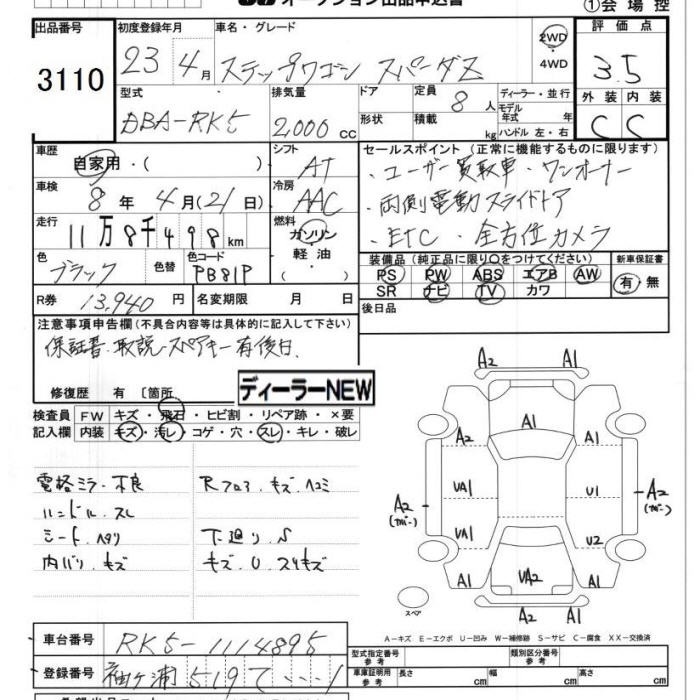 オークション出品申込書 ①会場控
出品番号 初度登録年月 車名・グレード 評価点
3110 23 4月 ステップワゴン スパーダZ 2WD・4WD 3.5
型式 排気量 ドア 定員 ディーラー・並行 外装 内装
DBA-RK5 2,000cc 形状 8人 積載 kg モデル年式 年式 ハンドル 左・右 C C
車歴 シフト セールスポイント(正常に機能するものに限ります)
自家用・( ) AT ・ユーザー買取車・ワンオーナー
車検 冷房
8年4月(21日) AAC ・両側電動スライドドア
走行 燃料
11万8千498km ガソリン・軽油・( ) ・ETC・全方位カメラ
色 色替 色コード 装備品(純正品に限り○をつけてください) 新車保証書
ブラック PB81P PS PW ABS エアB AW 有・無
SR ナビ TV カワ
R券 13,940円 名変期限 月 日 後日品
注意事項申告欄(不具合内容等は具体的に記入して下さい)
保証書.取説.スペアキー有後日.
修復歴 有 〔箇所
ディーラーNEW
検査員 FW キズ・飛石・ヒビ割・リペア跡・×要
記入欄 内装 キズ・汚レ・コゲ・穴・スレ・キレ・破レ
電格ミラー不良 Rフロア.キズ.ヘコミ
ハンドル.スレ
シート.ヘタリ 下廻り.S
内バリ.キズ キズ.U.スリキズ
A2 A1
A1
A2 A1
UA1 U1
A2 A2
UA1 U2
A1 UA2 A1
A2 A1
スペア
A-キズ E-エクボ U-凹み W-補修跡 S-サビ C-腐食 XX-交換済
車台番号 RK5-1114895 型式指定番号 参考 類別区分番号 参考
登録番号 袖ヶ浦519て・・・1 車庫証明用 参考 長さ cm 幅 cm 高さ cm